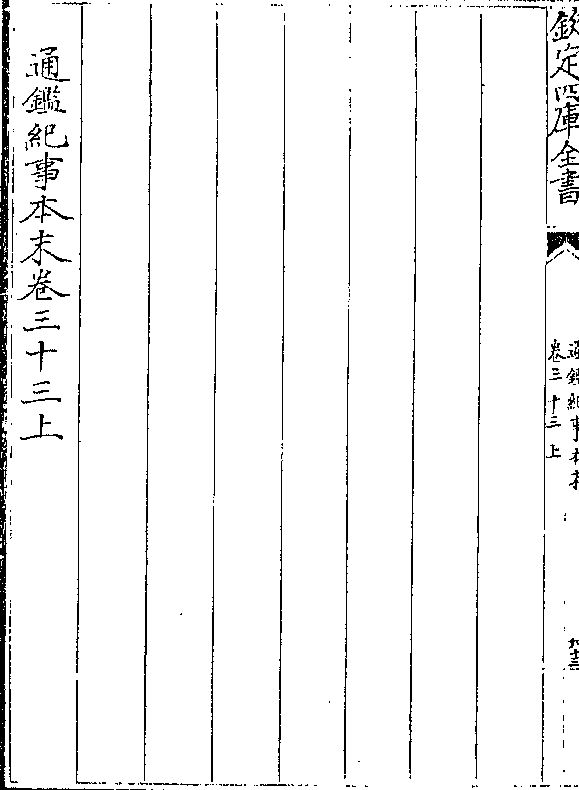 欽定四庫全書
通鑑紀事本末
卷三十三上
通鑑紀事本末卷三十三上